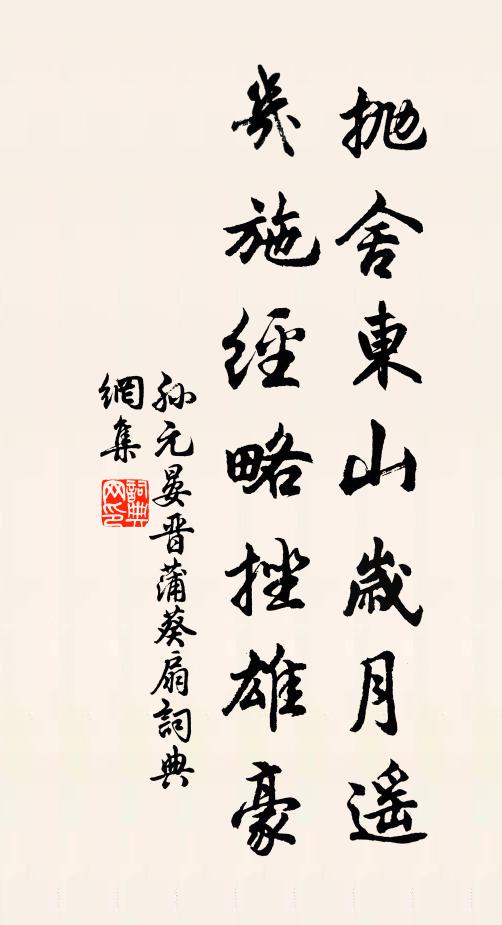 拋舍東山歲月遥
幾施經略挫雄豪
孫元晏晋蒲葵扇詞典
網集
詞典網印